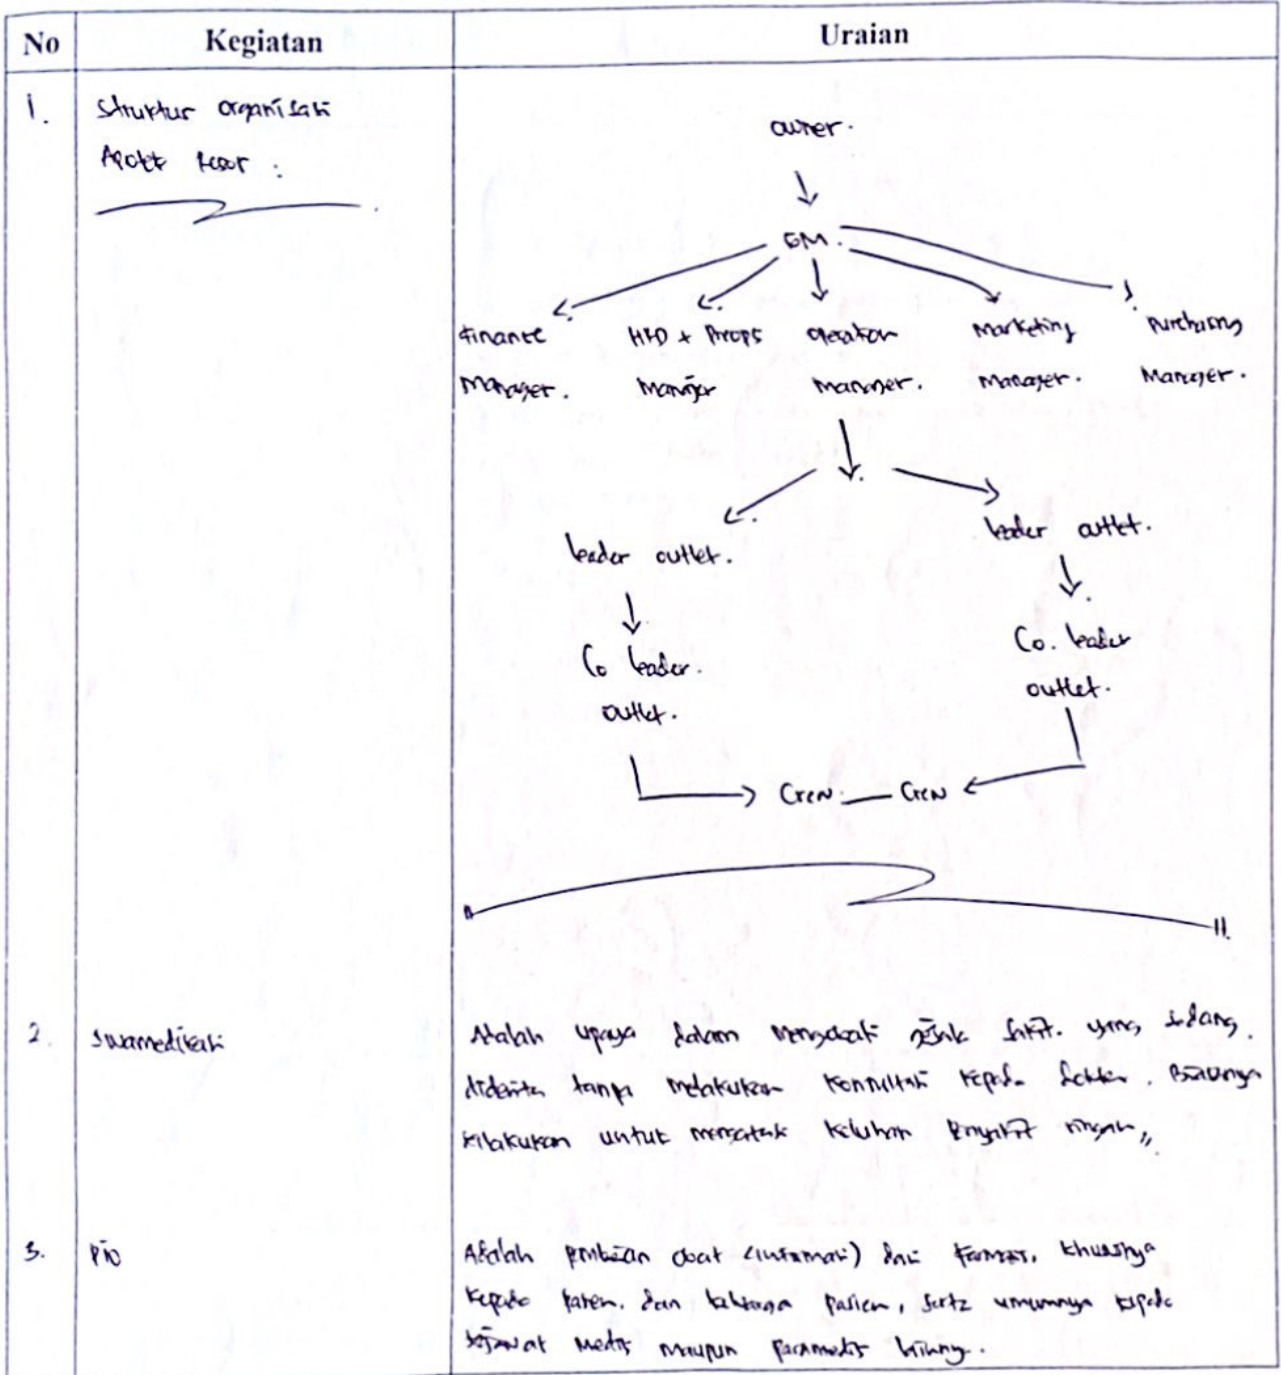 No Kegiatan Uraian
1. Struktur organisasi
Apotek :
owner.
GM.
Finance HRD + Props operation Marketing Purchasing
Manager. Manajer Manager. Manager. Manager.
leader outlet.
leader outlet.
Co leader.
outlet.
Co. leader
outlet.
Crew — Crew
2. Swamedikasi
Adalah upaya dalam mengobati gejala sakit. yang sedang.
diderita tanpa melakukan konsultasi kepada dokter. Biasanya
dilakukan untuk mengatasi keluhan penyakit ringan,,
3. PIO
Adalah pemberian obat (informasi) dari farmasi, khususnya
kepada pasien. dan keluarga pasien, serta umumnya kepada
sejawat medis maupun paramedis